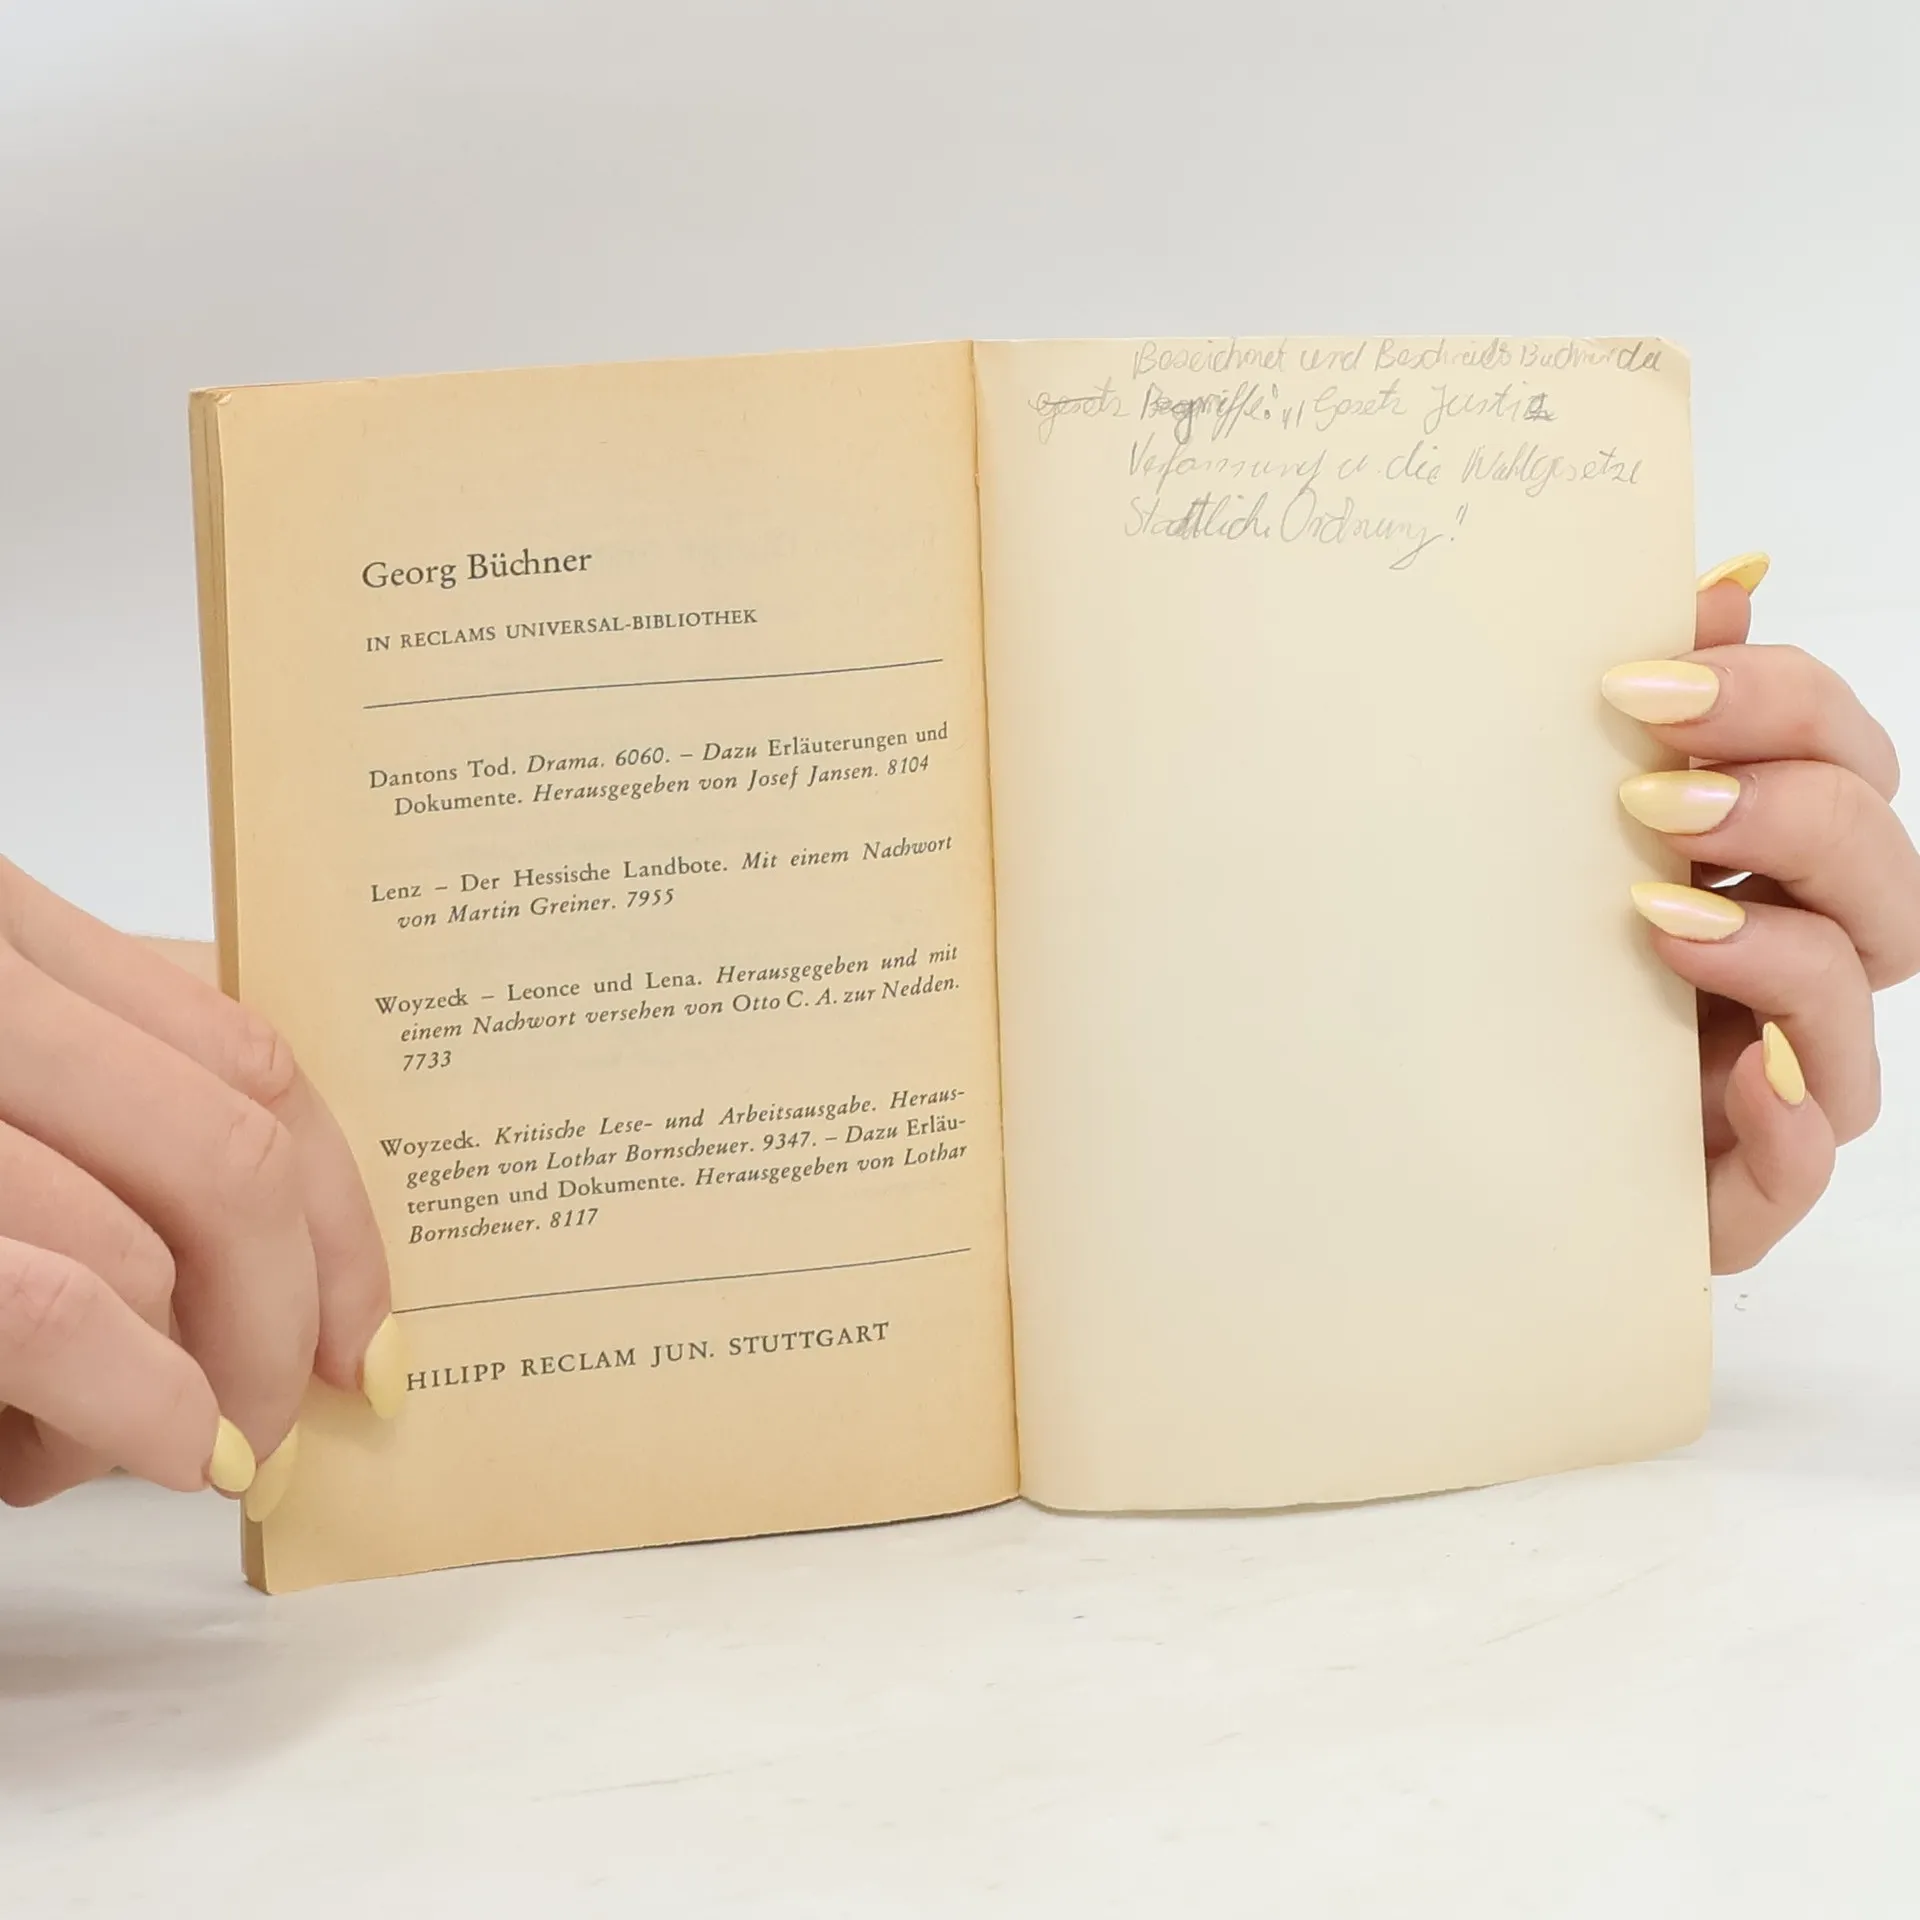 Georg Büchner
IN RECLAMS UNIVERSAL-BIBLIOTHEK
Dantons Tod. Drama. 6060. – Dazu Erläuterungen und
Dokumente. Herausgegeben von Josef Jansen. 8104
Lenz – Der Hessische Landbote. Mit einem Nachwort
von Martin Greiner. 7955
Woyzeck – Leonce und Lena. Herausgegeben und mit
einem Nachwort versehen von Otto C. A. zur Nedden.
7733
Woyzeck. Kritische Lese- und Arbeitsausgabe. Heraus-
gegeben von Lothar Bornscheuer. 9347. – Dazu Erläu-
terungen und Dokumente. Herausgegeben von Lothar
Bornscheuer. 8117
HILIPP RECLAM JUN. STUTTGART
Bezeichnet und Beschreibt Büchner die
gesetz Begriffe: "Gesetz Justiz
Verfassung u. die Wahlgesetze
Staatliche Ordnung!"